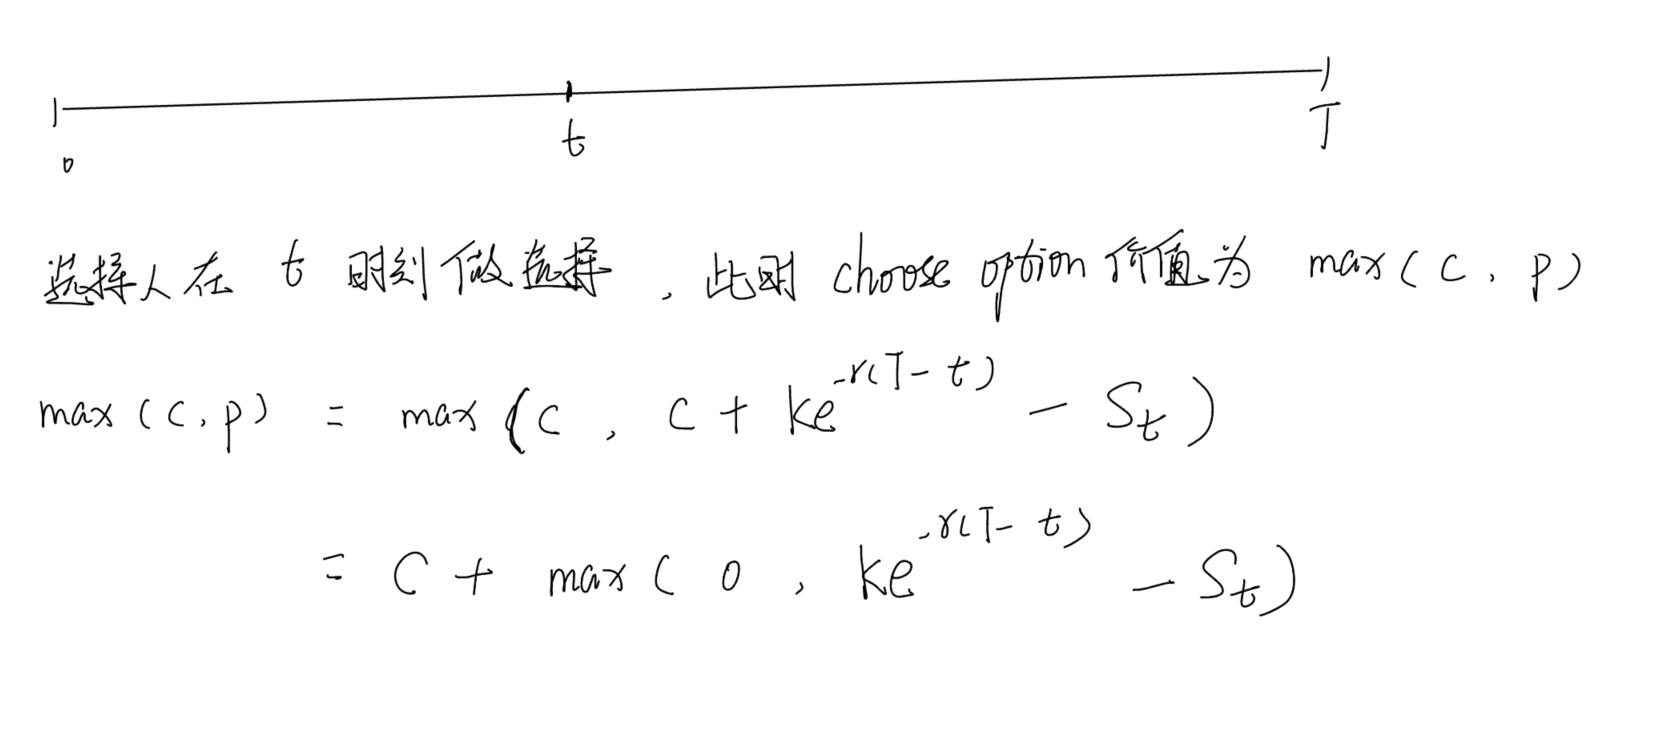 0 t T
选择人在 t 时刻做选择，此时 choose option 价值为 max(c, p)
max(c, p) = max(c, c + ke^{-r(T-t)} - S_t)
= c + max(0, ke^{-r(T-t)} - S_t)